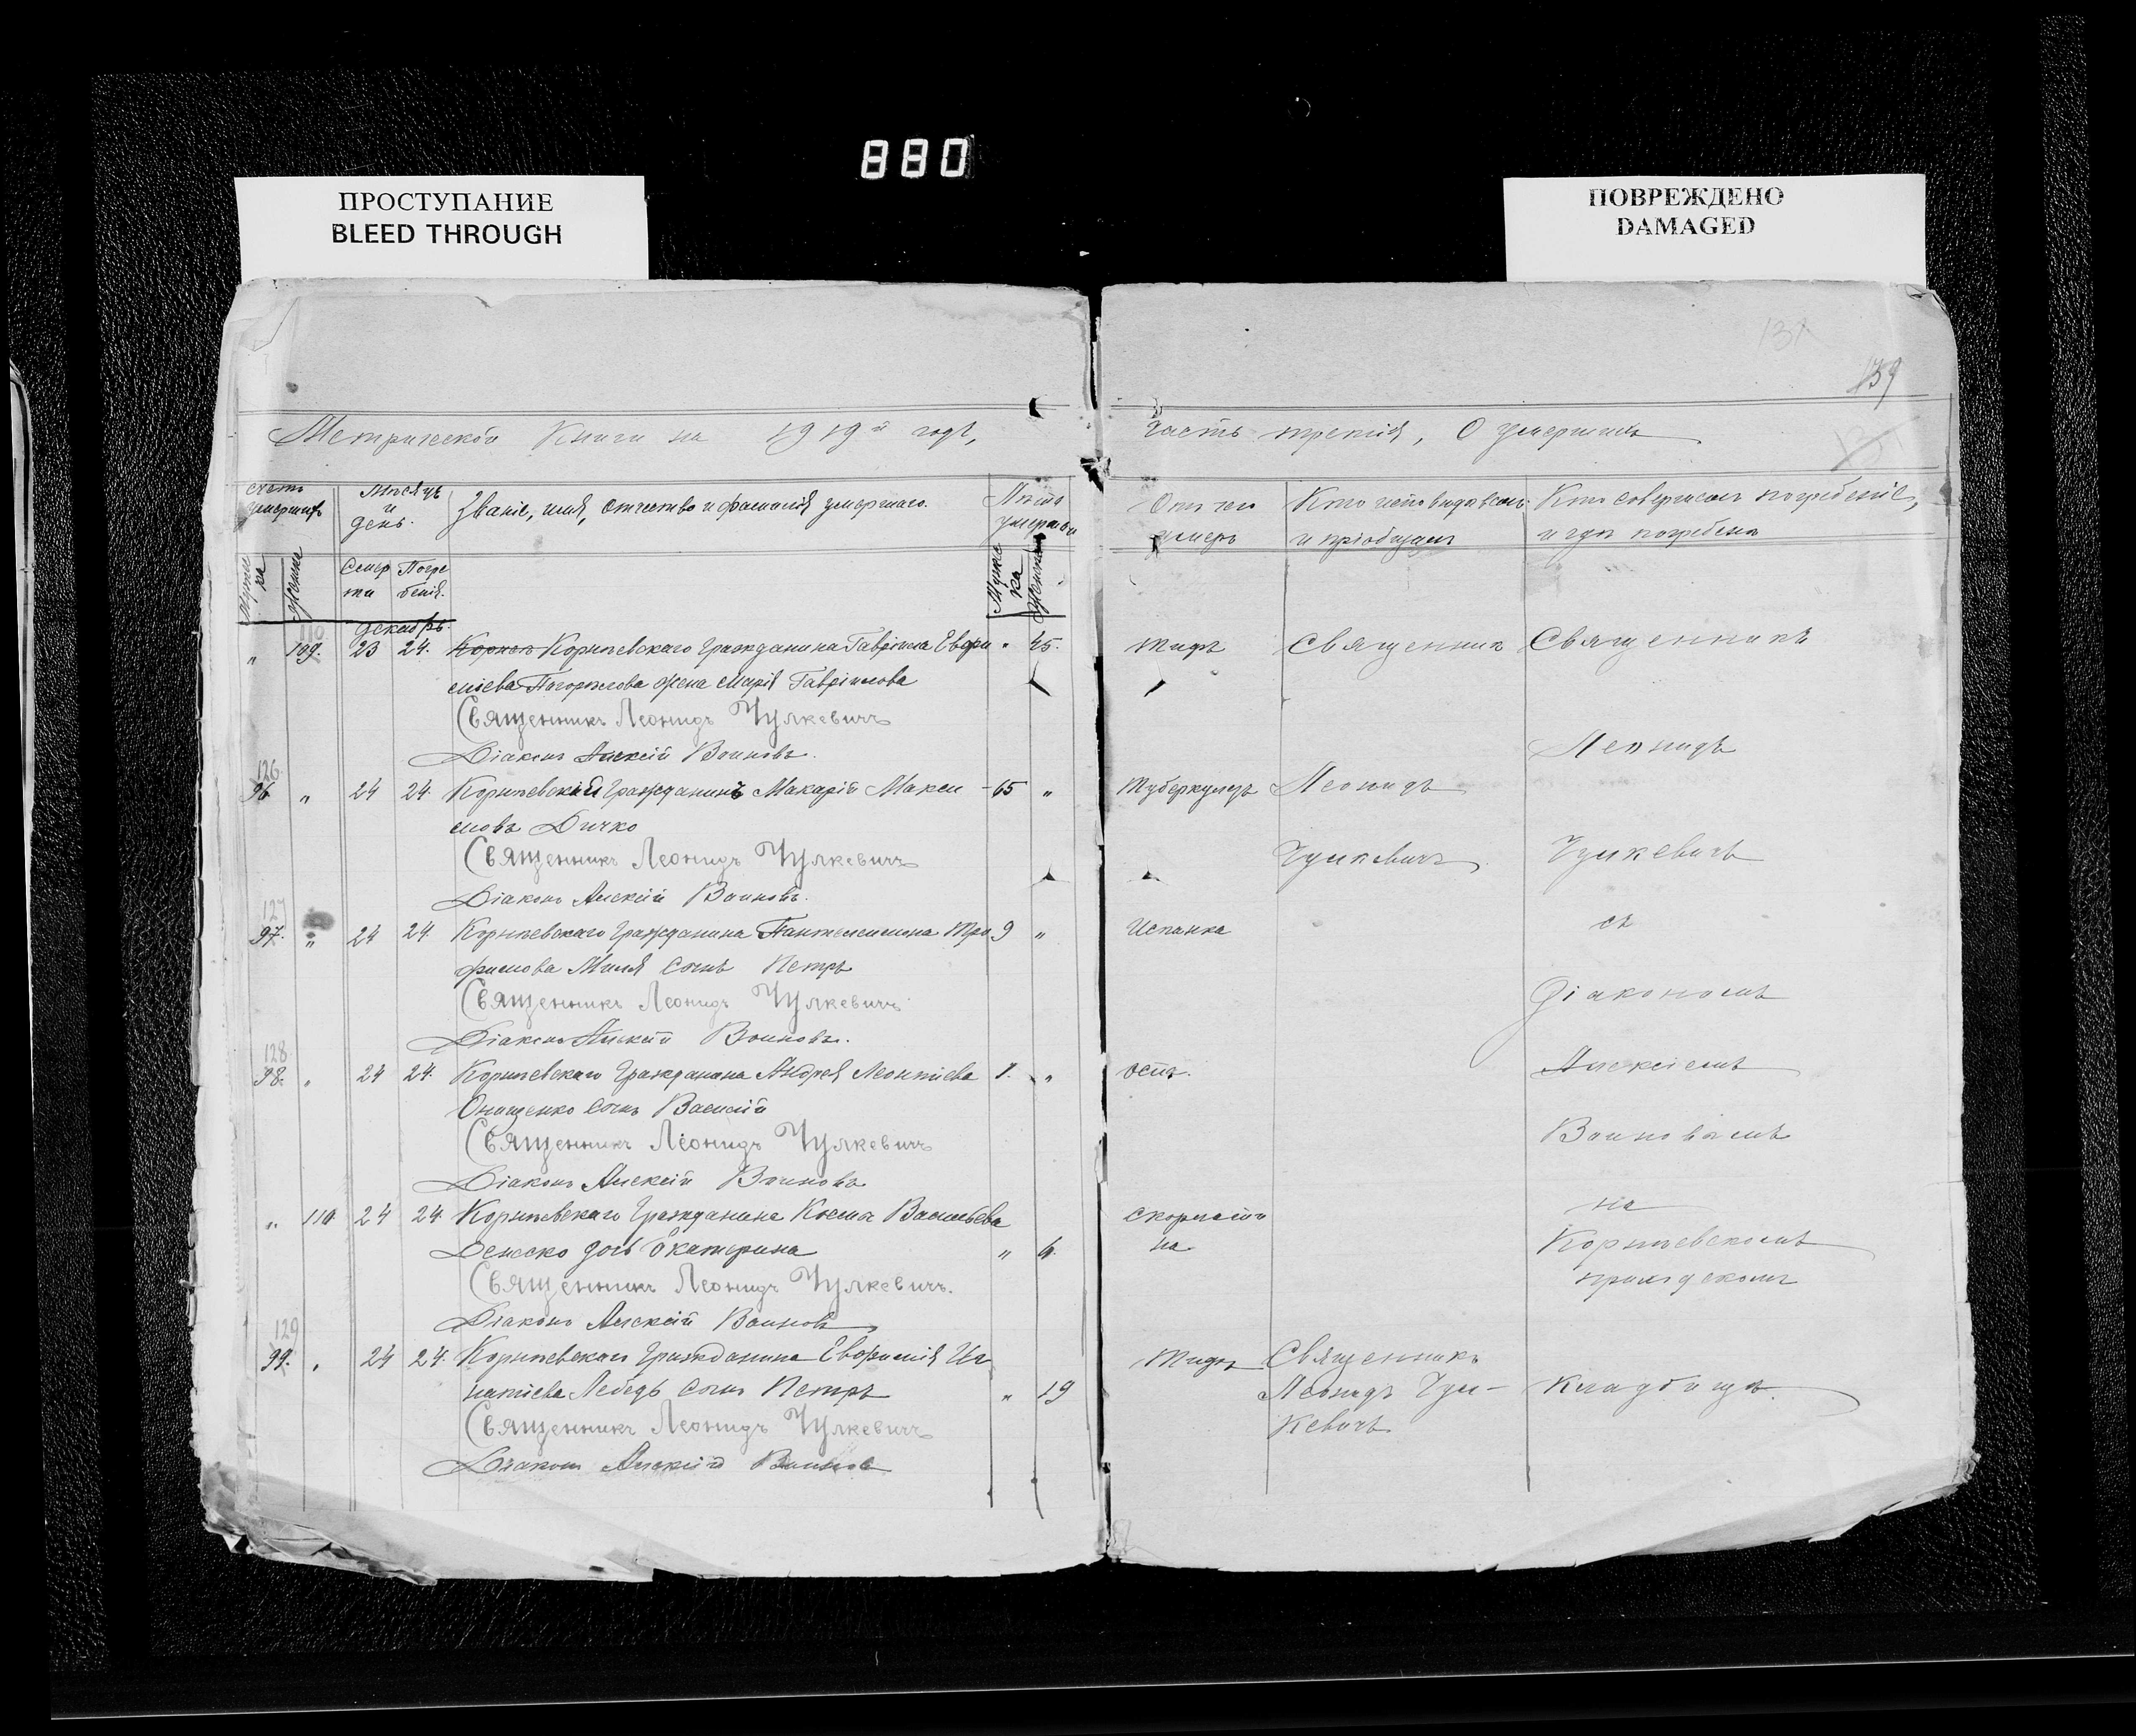 880
ПРОСТУПАНИЕ
BLEED THROUGH
ПОВРЕЖДЕНО
DAMAGED
131
139
Метрической Книги на 1919й годъ,
Часть третія, О умершихъ
счетъ умершихъ
Мѣсяцъ и день.
Званіе, имя, отчество и фамилія умершаго.
Лѣта умершаго
Мужеска
Женска
Смерти
Погребенія.
Мужеска
Женска
Отъ чего умеръ
Кто исповѣдовалъ и пріобщалъ
Кто совершалъ погребеніе, и гдѣ погребенъ
Декабрь.
110
„ 109. 23 24. Корыпевскаго Гражданина Гавріила Евфи „ 45.
міева Погорѣлова жена Марія Гавріилова
Священникъ Леонидъ Чулкевичъ
Діаконъ Алексій Воиновъ.
126
96 „ 24 24. Корыпевскій Гражданинъ Макарій Макси- 65 „
мовъ Дичко
Священникъ Леонидъ Чулкевичъ
Діаконъ Алексій Воиновъ.
127
97. „ 24 24. Корыпевскаго Гражданина Пантелеимона Тро 9 „
фимова Миля сынъ Петръ
Священникъ Леонидъ Чулкевичъ
Діаконъ Алексій Воиновъ.
128
98. „ 24 24. Корыпевскаго Гражданина Андрея Леонтіева 1. „
Онищенко сынъ Василій
Священникъ Леонидъ Чулкевичъ
Діаконъ Алексій Воиновъ
„ 110 24 24. Корыпевскаго Гражданина Косма Васильева
Денеско дочь Екатерина „ 6.
Священникъ Леонидъ Чулкевичъ.
Діаконъ Алексій Воиновъ
129
99. „ 24 24. Корыпевскаго Гражданина Евфимія Иг
натіева Лебедь сынъ Петръ „ 19
Священникъ Леонидъ Чулкевичъ
Діаконъ Алексій Воиновъ
тифъ
Туберкулезъ
Испанка
оспа.
скорлати
на
тифъ
Священникъ
Леонидъ
Чулкевичъ
Священникъ
Леонидъ Чул-
кевичъ
Священникъ
Леонидъ
Чулкевичъ
съ
Діакономъ
Алексіемъ
Воиновымъ
на
Корыпевскомъ
приходскомъ
Кладбищѣ.